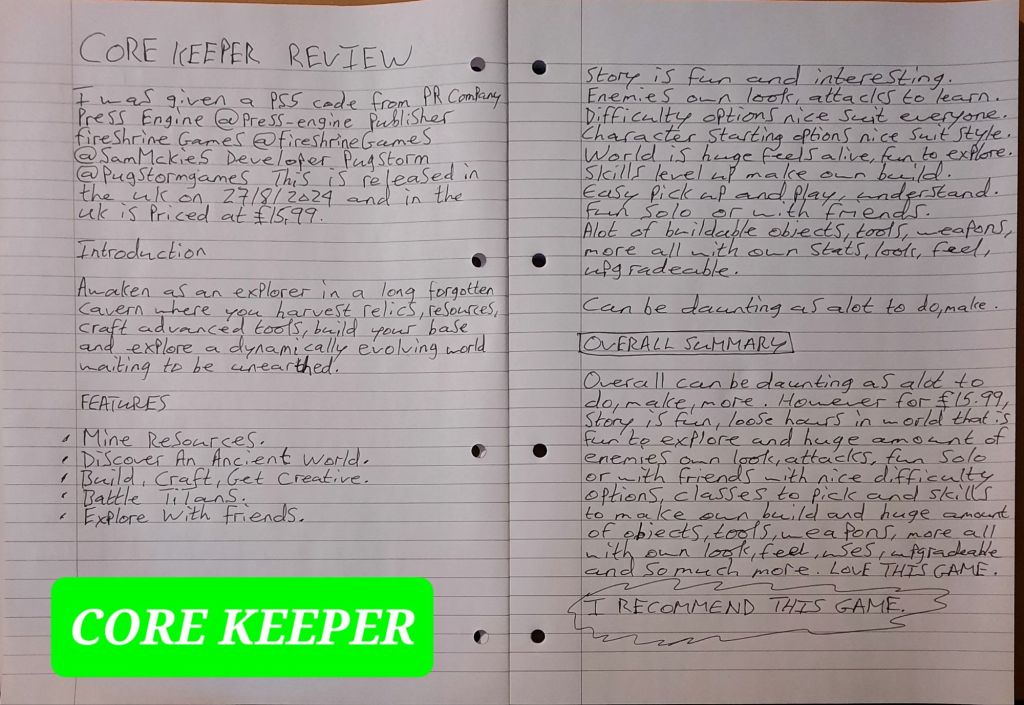 CORE KEEPER REVIEW
I was given a PS5 code from PR Company
Press Engine @Press-engine Publisher
fireshrine Games @fireshrineGames
@SamMckies Developer Pugstorm
@Pugstormgames This is released in
the uk on 27/8/2024 and in the
uk is Priced at £15,99.
Introduction
Awaken as an explorer in a long forgotten
cavern where you harvest relics, resources,
craft advanced tools, build your base
and explore a dynamically evolving world
waiting to be unearthed.
FEATURES
• Mine Resources.
• Discover An Ancient World.
• Build, Craft, Get Creative.
• Battle Titans.
• Explore With friends.
CORE KEEPER
Story is fun and interesting.
Enemies own look, attacks to learn.
Difficulty options nice suit everyone.
Character Starting options nice suit style.
World is huge feels alive, fun to explore.
Skills level up make own build.
Easy pick up and play, understand.
fun solo or with friends.
Alot of buildable objects, tools, weapons,
more all with own stats, look, feel,
upgradeable.
Can be daunting as alot to do, make.
OVERALL SUMMARY
Overall can be daunting as alot to
do, make, more. However for £15.99,
Story is fun, loose hours in world that is
fun to explore and huge amount of
enemies own look, attacks, fun solo
or with friends with nice difficulty
options, classes to pick and skills
to make own build and huge amount
of objects, tools, weapons, more all
with own look, feel, uses, upgradeable
and so much more. LOVE THIS GAME.
I RECOMMEND THIS GAME.